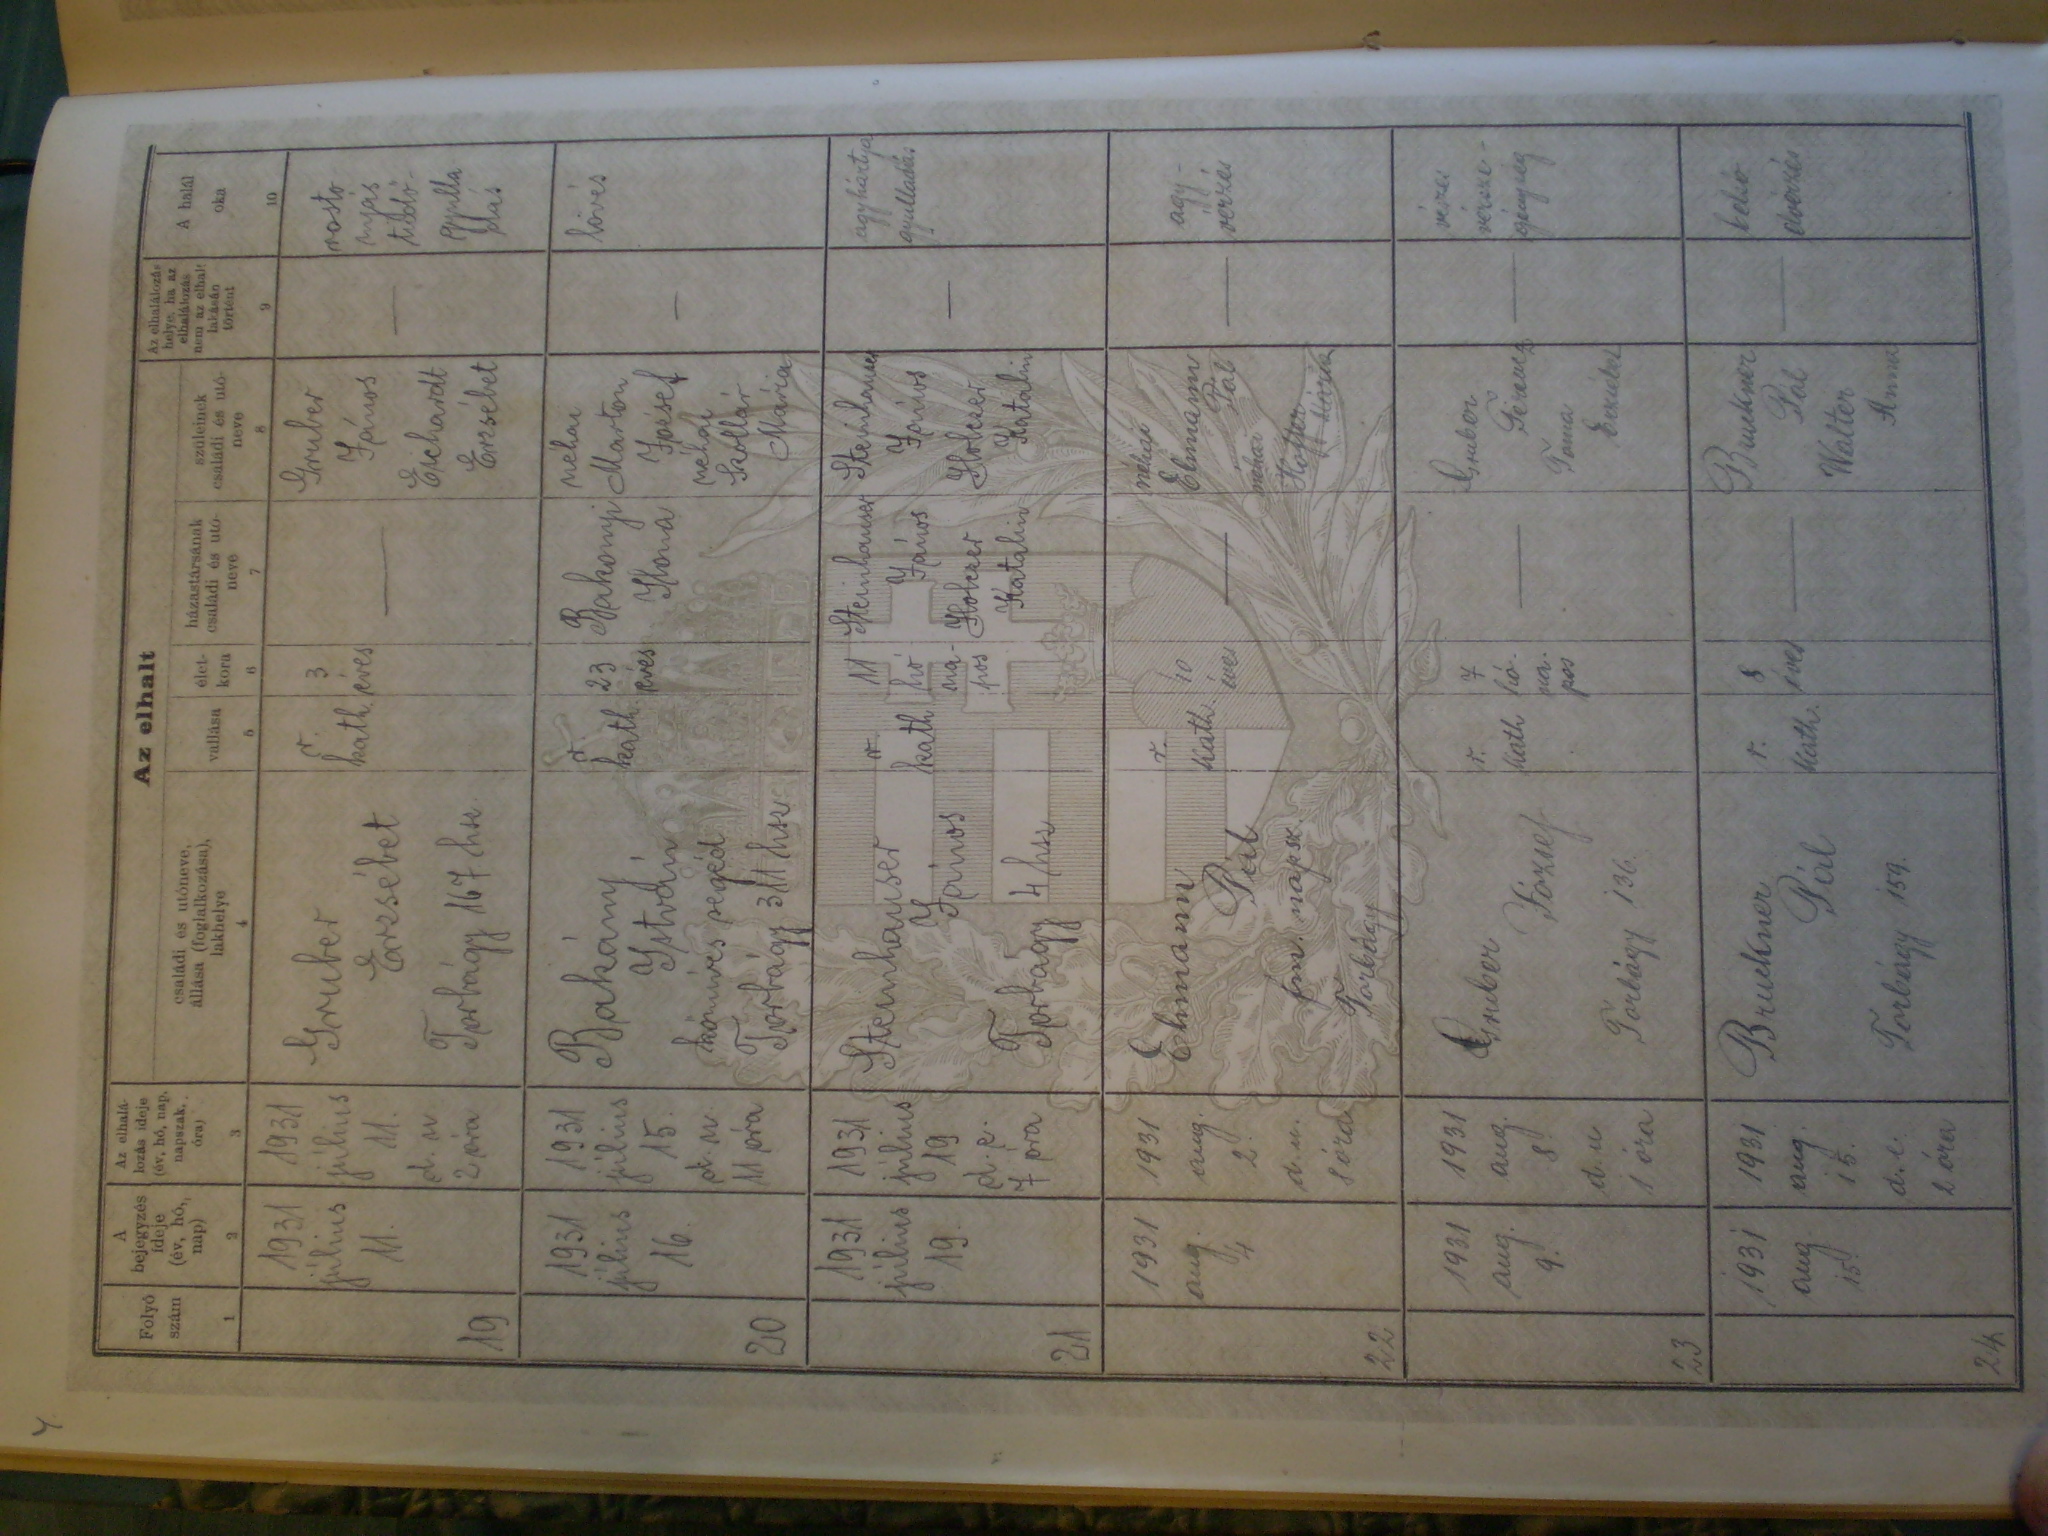 4
Az elhalt
Folyó
szám
A
bejegyzés
ideje
(év, hó,
nap)
Az elhalá-
lozás ideje
(év, hó, nap,
napszak,
óra)
családi és utóneve,
állása (foglalkozása),
lakhelye
vallása
élet-
kora
házastársának
családi és utó-
neve
szüleinek
családi és utó-
neve
Az elhalálozás
helye, ha az
elhalálozás
nem az elhalt
lakásán
történt
A halál
oka
1
2
3
4
5
6
7
8
9
10
19
1931
július
11.
1931
július
11.
d. u.
2 óra
Gruber
Erzsébet
Torbágy 167 hsz.
r.
kath.
3
éves
—
Gruber
János
Eckhardt
Erzsébet
—
rosto
nyás
tüdő-
gyulla
dás
20
1931
július
16.
1931
július
15.
d. u.
11 óra
Bakány
István
kőműves segéd
Torbágy 311 hsz
r.
kath.
23
éves
Bakonyi
Ilona
néhai
Marton
József
néhai
Szollár
Mária
—
lövés
21
1931
július
19.
1931
július
19
d. e.
7 óra
Steinhauser
János
Torbágy 4 hsz
r.
kath
11
hó
na-
pos
Steinhauser
János
Holczer
Katalin
Steinhauser
János
Holczer
Katalin
—
agyhártya
gyulladás
22
1931
aug.
4
1931
aug.
2.
d. u.
8 óra
Elmann
Pál
fm. napsz.
Torbágy
r.
kath.
éves
—
néhai
Elmann
Pál
néhai
Hoffer
Mária
—
agy-
vérzés
23
1931
aug.
9.
1931
aug.
8.
d. u.
1 óra
Gruber
József
Torbágy 136.
r.
kath
7
hó-
na-
pos
—
Gruber
Ferencz
Toma
—
vészes
vérsze-
génység
24
1931
aug.
15.
1931
aug.
15.
d. e.
2 óra
Bruckner
Pál
Torbágy 159.
r.
kath.
8
éves
—
Bruckner
Pál
Walter
Anna
—
belső
elvérzés